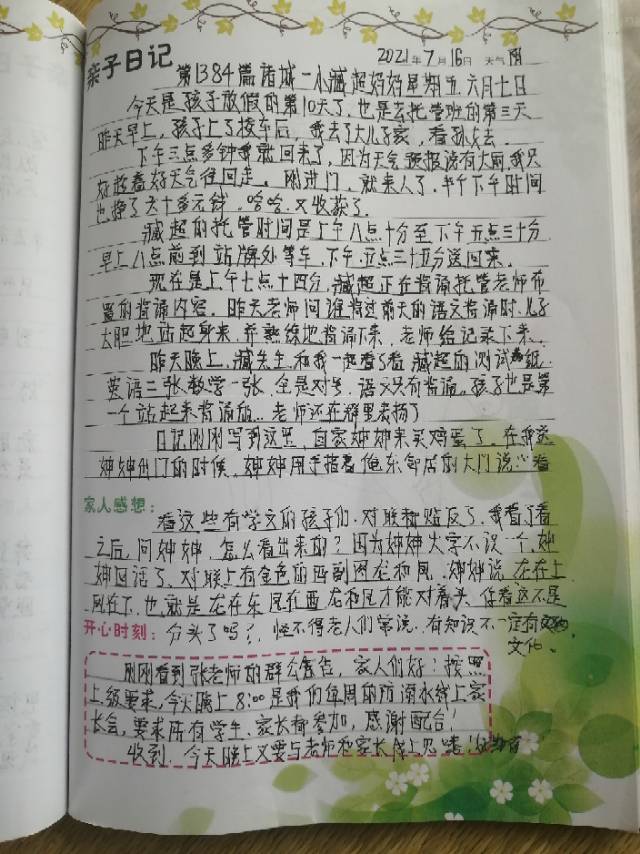 亲子日记 2021年7月16日 天气阴
第1384篇诸城一小臧超妈妈星期五.六月七日
今天是孩子放假的第10天了,也是去托管班的第三天
昨天早上,孩子上了校车后,我去了大儿子家,看孙女去.
下午三点多钟我就回来了,因为天气预报说有大雨,我只
好趁着好天气往回走。刚进门,就来人了.半个下午时间
也挣了六十多元钱.哈哈.又收获了.
臧超的托管时间是上午八点十分至下午五点三十分.
早上八点前到站牌处等车,下午.五点三十五分送回来.
现在是上午七点十四分,臧超正在背诵托管老师布
置的背诵内容.昨天老师问谁背过前天的语文背诵时.儿子
大胆地站起身来,并熟练地背诵下来.老师给记录下来.
昨天晚上,臧先生和我一起看了看臧超的测试纸.
英语二张数学一张.全是对号.语文只有背诵.孩子也是第
一个站起来背诵的...老师还在群里表扬了
日记刚刚写到这里,自家婶婶来买鸡蛋了.在我送
婶婶出门的时候,婶婶用手指着俺东邻居的大门说:看
家人感想:看这些有学文的孩子们.对联都贴反了.我看了看
之后,问婶婶,怎么看出来的?因为婶婶大字不识一个.婶
婶回话了.对联上有金色的两副图龙和凤.婶婶说.龙在上
凤在下.也就是龙在东凤在西龙和凤才能对着头.你看这不是
开心时刻:分头了吗?怪不得老人们常说.有知识不一定有
文化.
刚刚看到张老师的群公告.家人们好:按照
上级要求,今天晚上8:00是我们每周的防溺水线上家
长会,要求所有学生、家长都参加,感谢配合!
收到.今天晚上又要与老师和家长线上见喽!